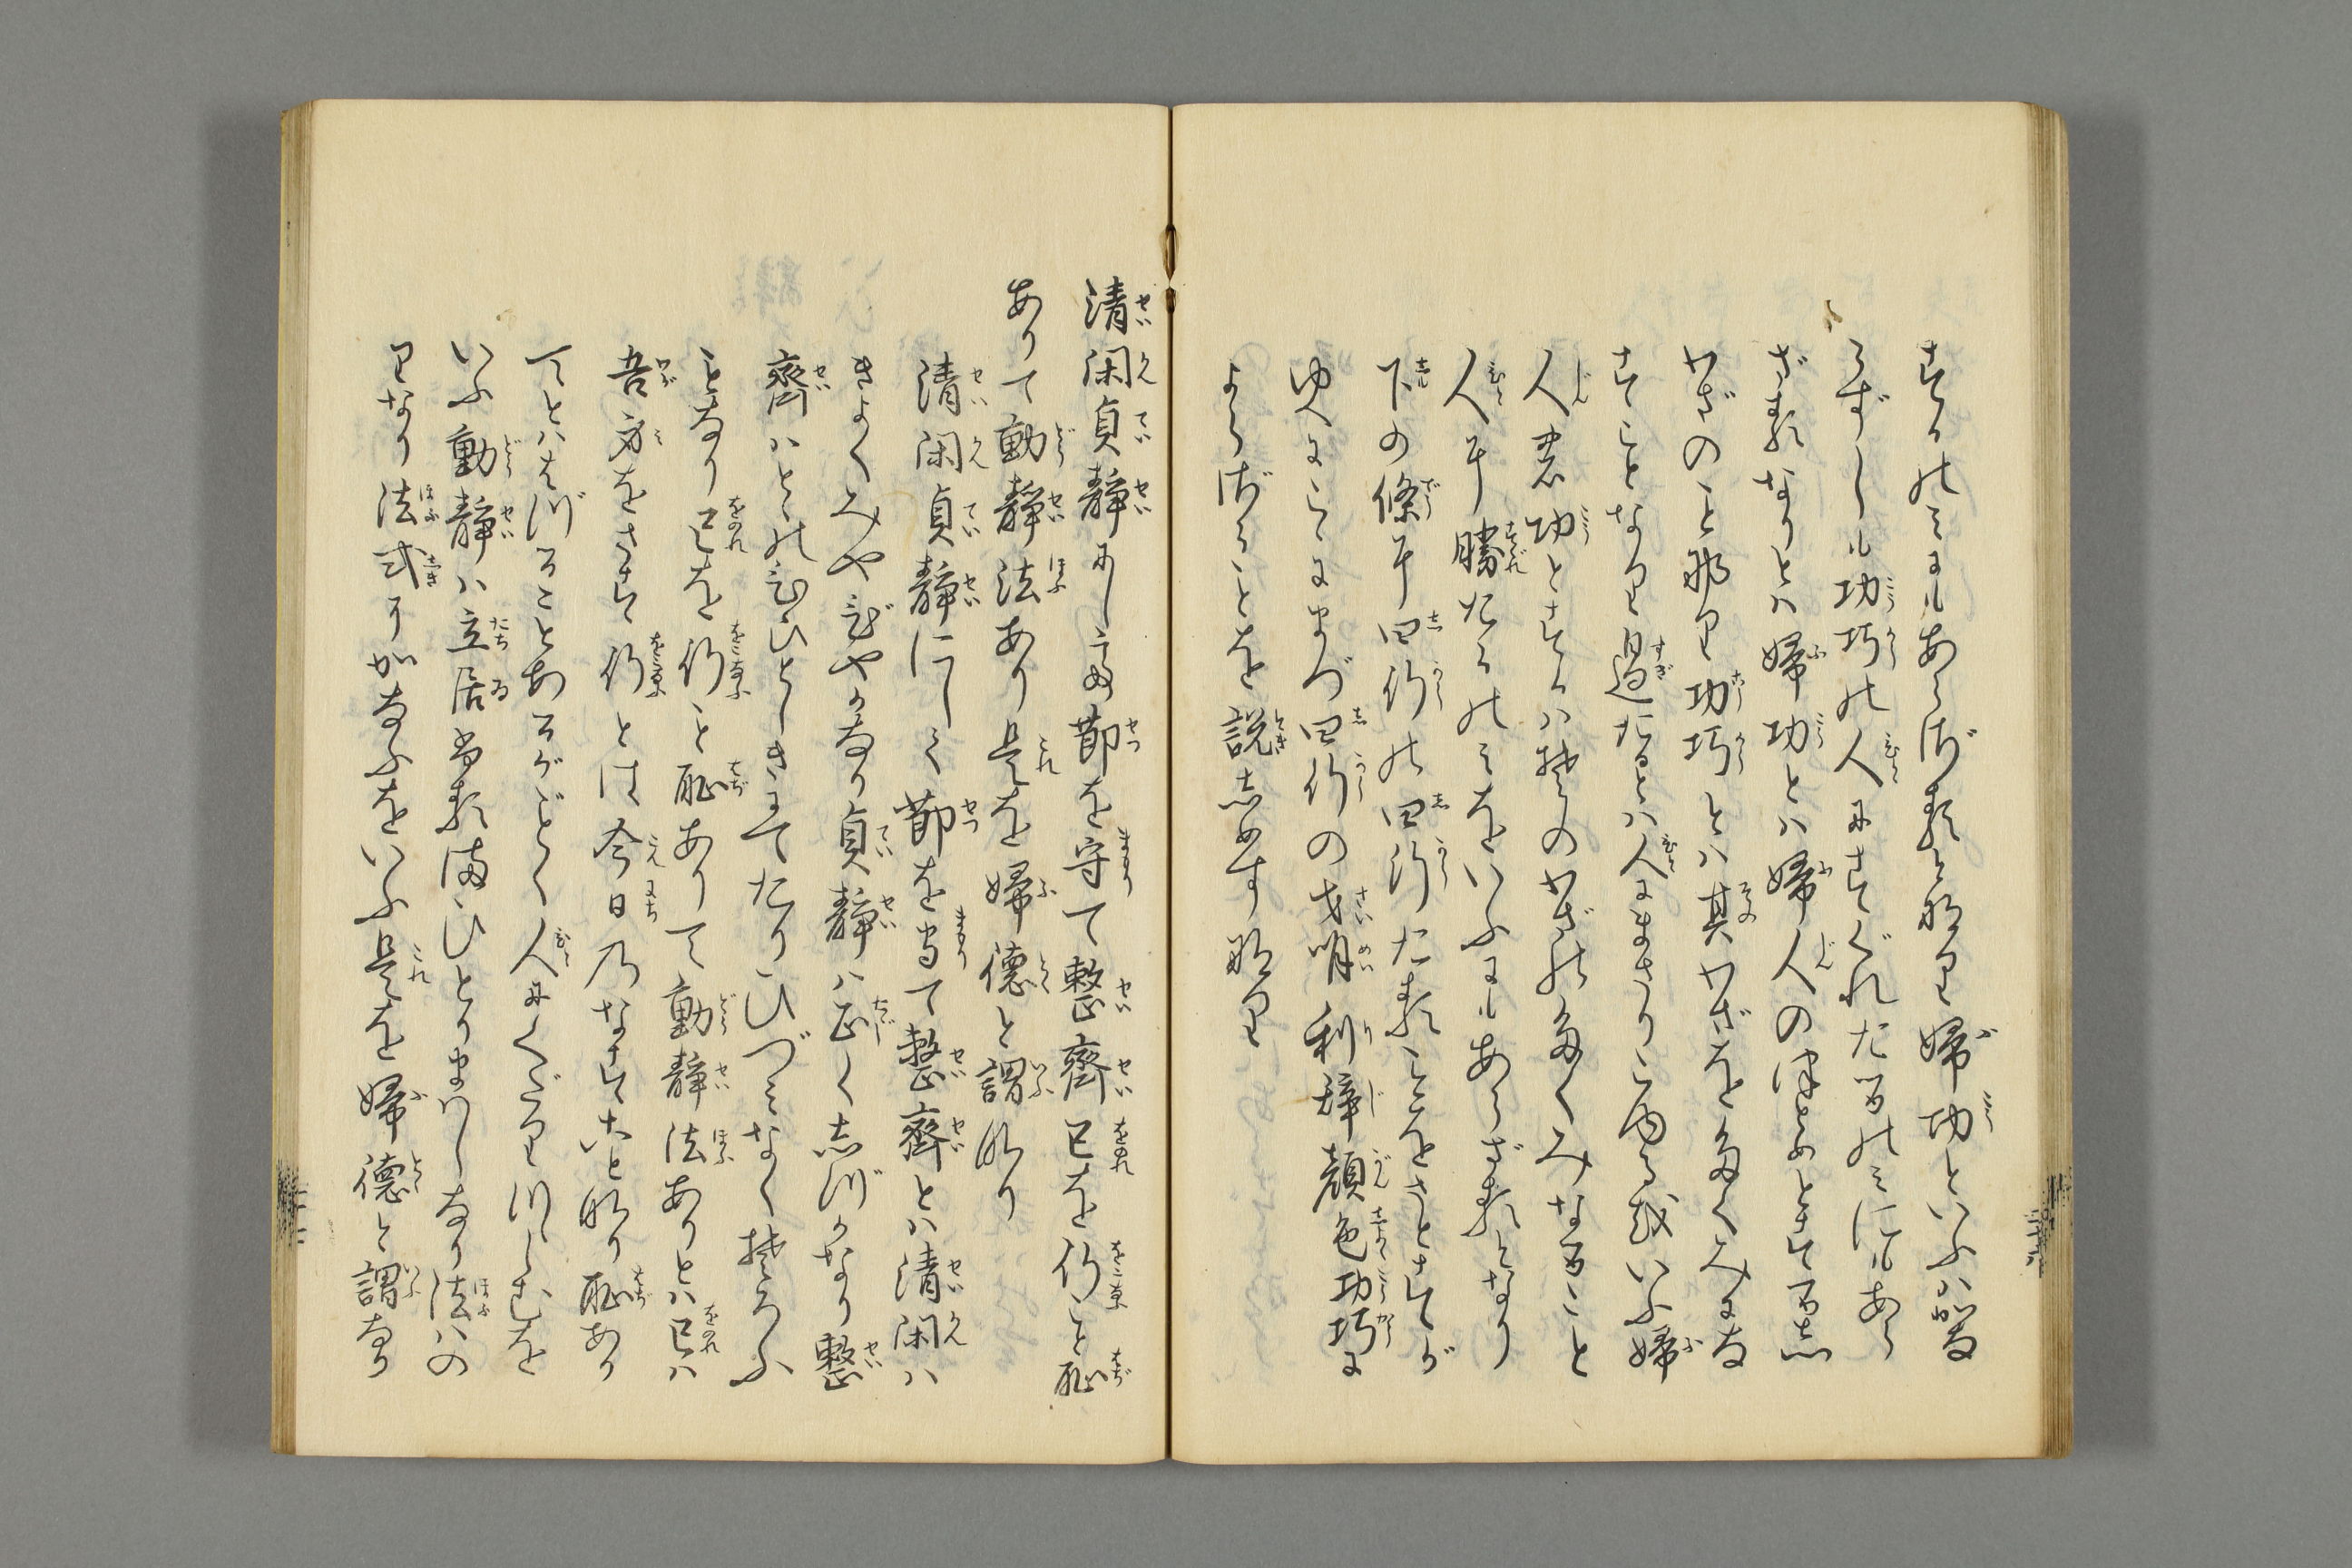 するのみにもあらざるとなり婦功といふハかな
らずしも功巧の人にすぐれたるのみにもあら
ざるなりとハ婦功とハ婦人のつとめとするし
わざのこと那り功巧とハ其わざをたくみにな
すことなり過たるとハ人にまさりこゆるをいふ婦
人の功とするハそのわざのたくみなること
人に勝たるのみをいふにもあらざるとなり
下の條に四行の四行たることをさとすが
ゆへにこゝにまづ四行の才明利辞顔色功巧に
よらざることを説しめすなり
清閑貞静にして節を守て整齊己を行こと恥
ありて動静法あり是を婦徳と謂なり
清閑貞静にして節を守て整齊とハ清閑ハ
きよくみやびやかなり貞静ハ正しくしづかなり整
齊ハとゝのひひとしきにてたりひづみなくそろふ
ことなり己を行こと恥ありて動静法ありとハ己ハ
吾身をさす行とは今日乃なすことなり恥あり
てとハはづることあるがごとく人にくだりつゝしむを
いふ動静ハ立居ふるまひとりまハしなり法ハの
りなり法式にかなふをいふ是を婦徳と謂なり